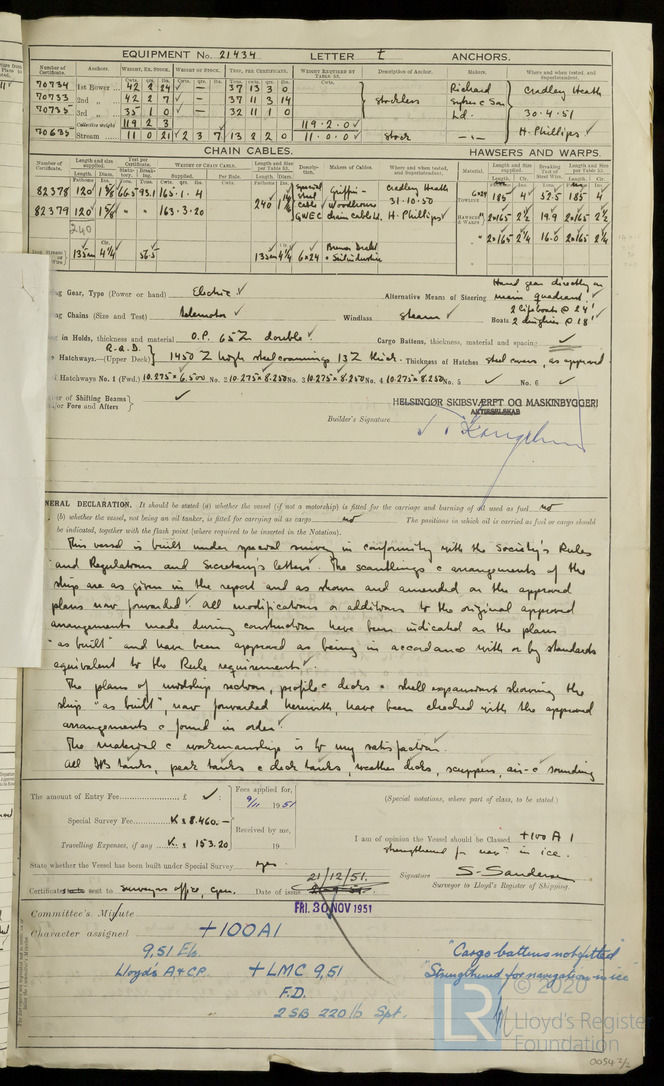 EQUIPMENT No. 21434 LETTER t ANCHORS.
Number of Certificate. Anchors. WEIGHT, EX. STOCK WEIGHT OF STOCK. TEST, PER CERTIFICATE. WEIGHT REQUIRED BY TABLE 53. Description of Anchor. Makers. Where and when tested, and Superintendent.
70734 1st Bower 42 2 24 — 37 13 3 0 Stockless Richard Cradley Heath
70733 2nd " 42 2 7 — 37 11 3 14 Sykes & Son
70735 3rd " 35 1 0 — 32 11 1 0 Ld. 30.4.51
Collective weight 119 2 3 119.2.0 H. Phillips
70635 Stream 11 0 21 2 3 7 13 2 2 0 11.0.0 Stock
CHAIN CABLES. HAWSERS AND WARPS.
Number of Certificate. Length and size supplied. Test per Certificate. WEIGHT OF CHAIN CABLE. Length and size per Table 53. Description. Makers of Cables. Where and when tested, and Superintendent. Material. Length and size supplied. Breaking Test of Steel Wire. Length and size per Table 53.
82378 120 66.5 93.1 165.1.4 240 Special Steel Griffin- Cradley Heath 185 4 52.5 185 4
82379 120 1⅝ " " 163.3.20 GWEC Woodhouse 31.10.50 chain cable Ld. H. Phillips 2x165 2½ 19.9 2x165 2½
240 " 2x165 2¼ 16.0 2x165 2¼
135 4¼ 56.5 135 4¼ 6x24
Gear, Type (Power or hand) Electric Alternative Means of Steering Hand gear directly on main quadrant
Chains (Size and Test) Telemotor Windlass Steam Boats 2 lifeboats @ 24' 2 dinghies @ 18'
in Holds, thickness and material O.P. 65 Z double Cargo Battens, thickness, material and spacing
Hatchways.—(Upper Deck) R.Q.D. 1450 Z high steel coamings 13 Z thick. Thickness of Hatches steel covers, as approved
Hatchways No. 1 (Fwd.) 10.275 x 6.500 No. 2 10.275 x 8.250 No. 3 10.275 x 8.250 No. 4 10.275 x 8.250 No. 5 No. 6
of Shifting Beams
or Fore and Afters
HELSINGØR SKIBSVÆRFT OG MASKINBYGGERI
AKTIESELSKAB
Builder's Signature
NERAL DECLARATION. It should be stated (a) whether the vessel (if not a motorship) is fitted for the carriage and burning of oil used as fuel no
(b) whether the vessel, not being an oil tanker, is fitted for carrying oil as cargo no The positions in which oil is carried as fuel or cargo should
be indicated, together with the flash point (where required to be inserted in the Notation).
This vessel is built under special survey in conformity with the Society's Rules
and Regulations and Secretary's letters. The scantlings & arrangements of the
ship are as given in the report and as shown and amended on the approved
plans now forwarded. All modifications or additions to the original approved
arrangements made during construction have been indicated on the plans
"as built" and have been approved as being in accordance with or by standards
equivalent to the Rule requirements.
The plans of midship section, profile & decks & shell expansion showing the
ship "as built", now forwarded herewith, have been checked with the approved
arrangements & found in order.
The material & workmanship is to my satisfaction.
All DB tanks, peak tanks & deck tanks, weather decks, scuppers, air- & sounding
The amount of Entry Fee £ : Fees applied for, 9/11 1951
Special Survey Fee K 8.460.— Received by me,
Travelling Expenses, if any K. 153.20 19
(Special notations, where part of class, to be stated.)
I am of opinion the Vessel should be Classed +100 A 1
strengthened for nav" in ice.
State whether the Vessel has been built under Special Survey yes
Signature S. Sanderson
Surveyor to Lloyd's Register of Shipping.
Certificate sent to Surveyors office, Cpn. Date of issue 21/12/51.
FRI. 30 NOV 1951
Committee's Minute
Character assigned +100A1
9,51 Els.
Lloyd's A & CP. +LMC 9,51
F.D.
2 SB 220 lb Spt.
"Cargo battens not fitted"
"Strengthened for navigation in ice"
© 2020
LR Lloyd's Register
Foundation
0054 2/2